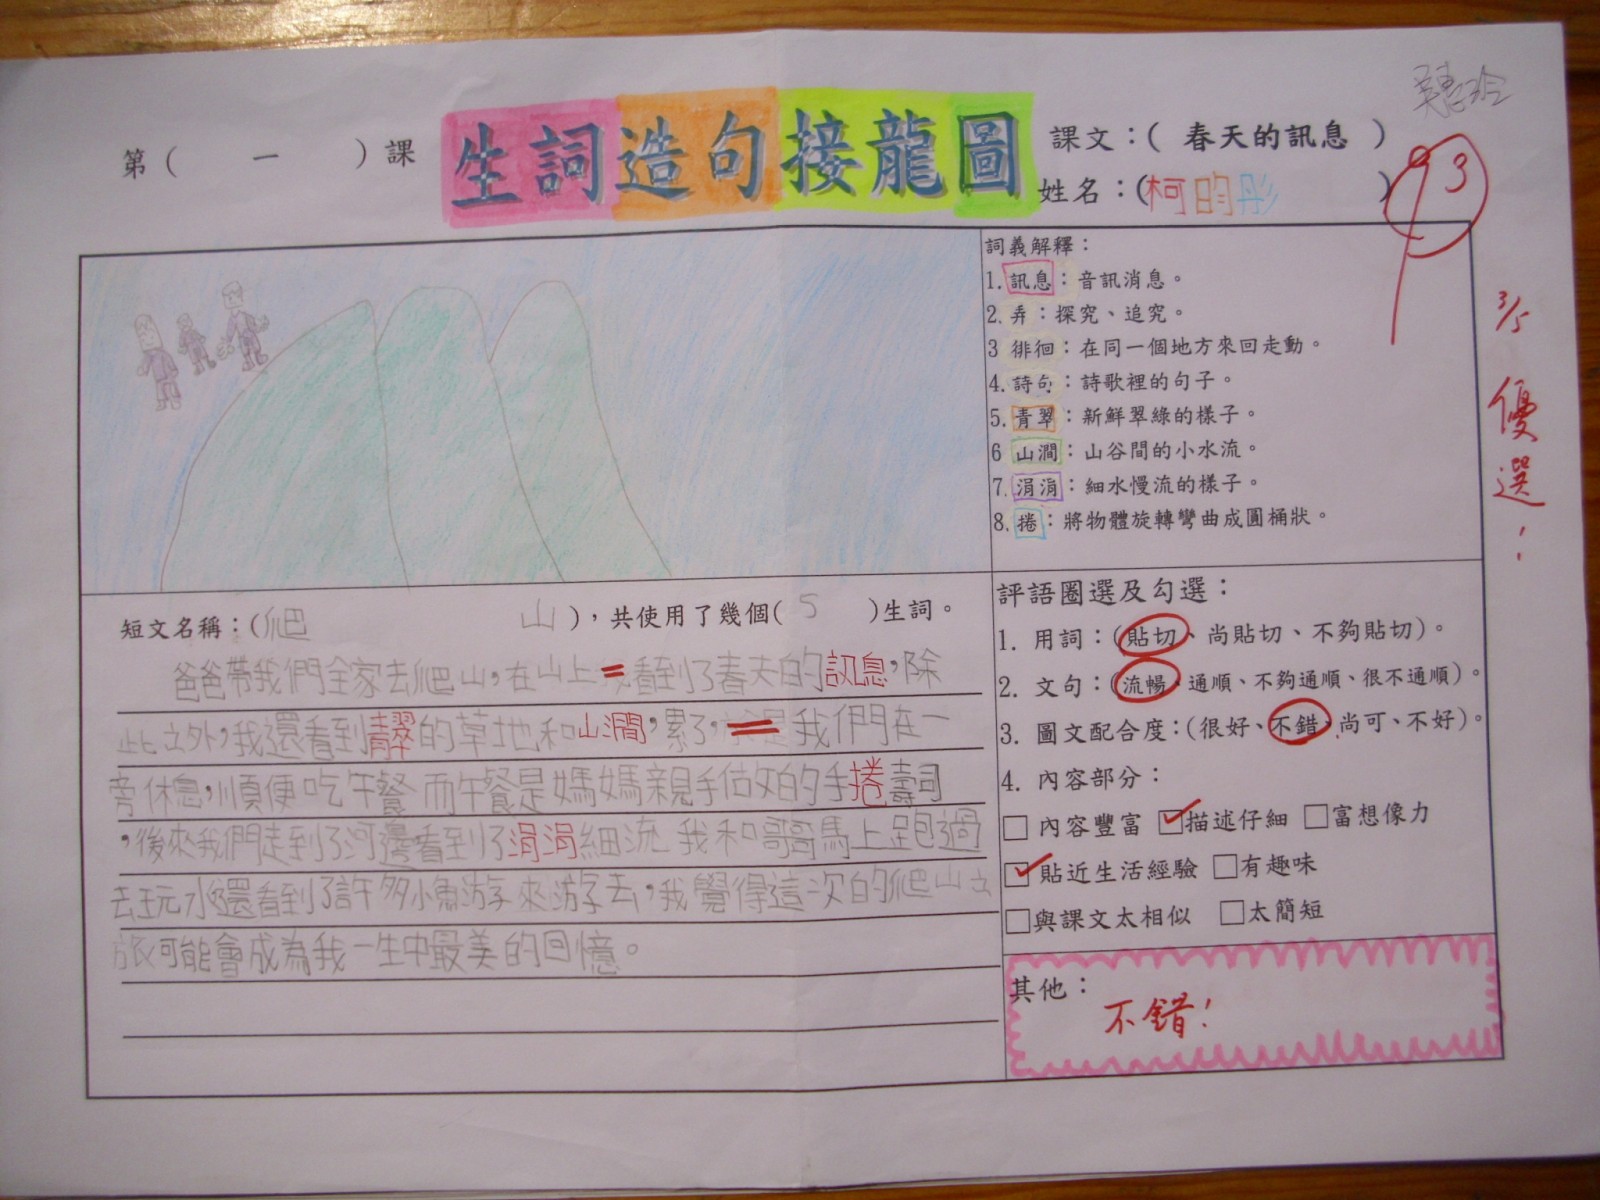 第( 一 )課
生詞造句接龍圖
課文：( 春天的訊息 )
姓名：(柯昀彤 )
93
3/5
優選！
詞義解釋：
1. 訊息：音訊消息。
2. 弄：探究、追究。
3 徘徊：在同一個地方來回走動。
4. 詩句：詩歌裡的句子。
5. 青翠：新鮮翠綠的樣子。
6 山澗：山谷間的小水流。
7. 涓涓：細水慢流的樣子。
8. 捲：將物體旋轉彎曲成圓桶狀。
短文名稱：(爬 山)，共使用了幾個( 5 )生詞。
爸爸帶我們全家去爬山，在山上看到了春天的訊息，除
此之外，我還看到青翠的草地和山澗，累了，我們在一
旁休息，順便吃午餐而午餐是媽媽親手做的手捲壽司
，後來我們走到了河邊看到了涓涓細流 我和哥哥馬上跑過
去玩水還看到了許多小魚游來游去，我覺得這次的爬山之
旅可能會成為我一生中最美的回憶。
評語圈選及勾選：
1. 用詞：(貼切、尚貼切、不夠貼切)。
2. 文句：(流暢、通順、不夠通順、很不通順)。
3. 圖文配合度：(很好、不錯、尚可、不好)。
4. 內容部分：
□ 內容豐富 ☑描述仔細 □富想像力
☑ 貼近生活經驗 □有趣味
□與課文太相似 □太簡短
其他：
不錯！